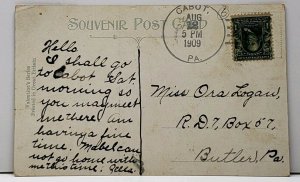 SOUVENIR POST CARD
CABOT,
AUG
5 PM
1909
PA.
Hello
I shall go
to Cabot Sat.
morning so
you may meet
me there am
having a fine
time. Mabel can
not go home with
me this time.
Miss Ora Logan,
R.D.7, Box 57,
Butler, Pa.